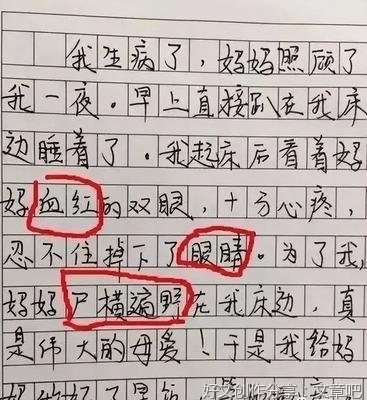 我生病了，妈妈照顾了
我一夜。早上直接趴在我床
边睡着了。我起床后看着妈
妈血红的双眼，十分心疼，
忍不住掉下了眼睛。为了我，
妈妈尸横遍野在我床边，真
是伟大的母爱！于是我给妈
妈的做了早饭，
好文创作分享：文章吧